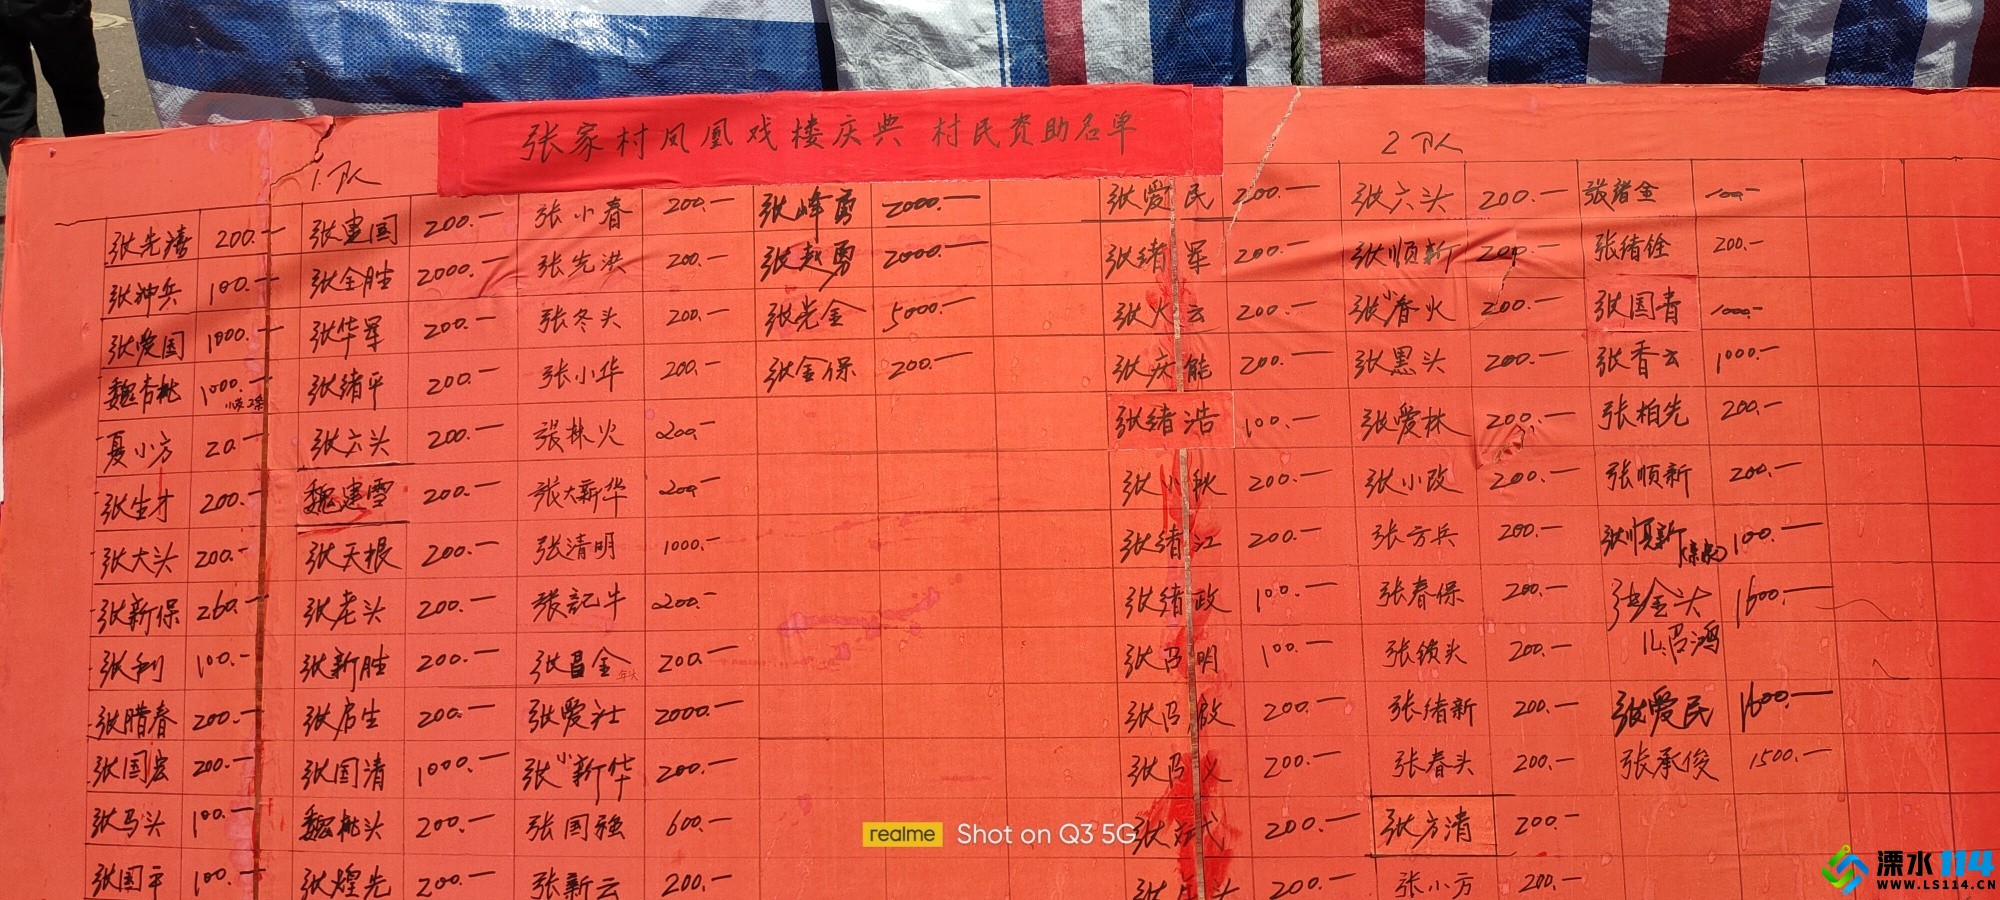 张家村凤凰戏楼庆典 村民资助名单
1.队
2队
张先清 200.— 张建国 200.— 张小春 200.— 张峰勇 2000.— 张爱民 200.— 张六头 200.— 张绪金 100.—
张冲兵 100.— 张全胜 2000.— 张先洪 200.— 张赵勇 2000.— 张绪军 200.— 张顺新 200.— 张绪铨 200.—
张爱国 1000.— 张华军 200.— 张冬头 200.— 张光金 5000.— 张火云 200.— 张小春火 200.— 张国青 1000.—
魏杏桃 1000.— 张绪平 200.— 张小华 200.— 张金保 200.— 张庆能 200.— 张黑头 200.— 张香云 1000.—
夏小方 20.— 张六头 200.— 張林火 200.— 张绪浩 100.— 张爱林 200.— 张柏先 200.—
张生才 200.— 魏建雪 200.— 张大新华 200.— 张小秋 200.— 张小改 200.— 张顺新 200.—
张大头 200.— 张天根 200.— 张清明 1000.— 张绪江 200.— 张方兵 200.— 张顺新 100.—
张新保 260.— 张老头 200.— 张記牛 200.— 张绪政 100.— 张春保 200.— 张金头 1600.—
张利 100.— 张新胜 200.— 张昌金 200.— 张吕明 100.— 张锁头 200.—
张腊春 200.— 张启生 200.— 张爱社 2000.— 200.— 张绪新 200.— 张爱民 1600.—
张国宏 200.— 张国清 1000.— 张小新华 200.— 200.— 张春头 200.— 张承俊 1500.—
张马头 100.— 魏桃头 200.— 张国强 600.— 200.— 张方清 200.—
张国平 100.— 张煌先 200.— 张新云 200.— 200.— 张小方 200.—
realme Shot on Q3 5G
溧水114
WWW.LS114.CN